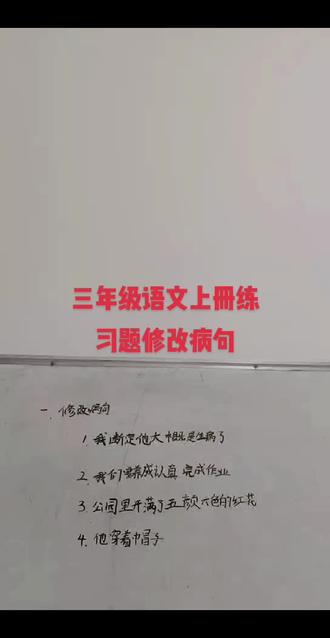 三年级语文上册练
习题修改病句
一、修改病句
1. 我断定他大概是生病了
2. 我们要养成认真完成作业
3. 公园里开满了五颜六色的红花
4. 他穿着巾帽子